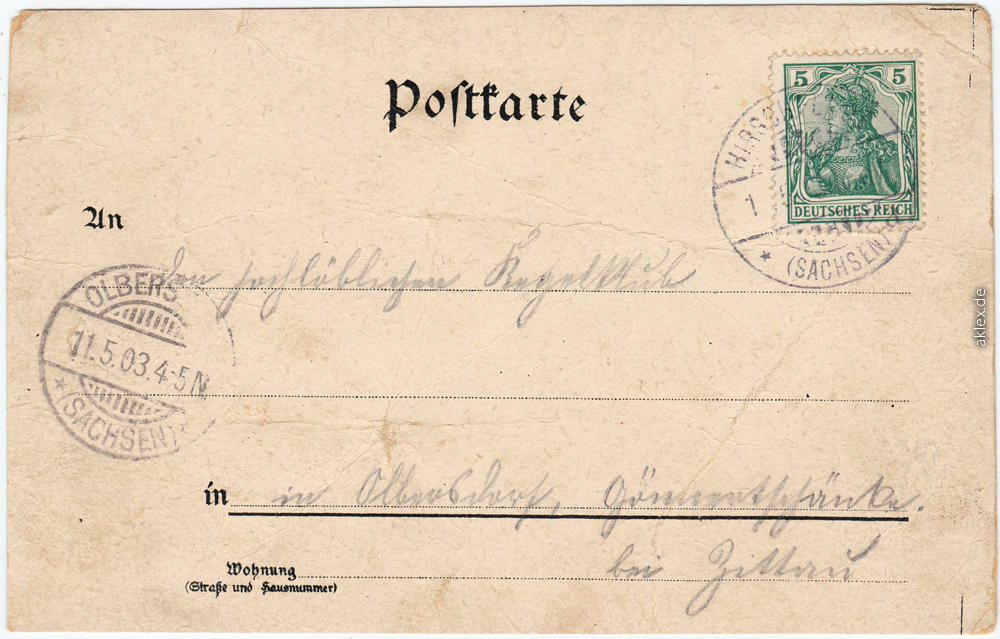 Postkarte
5 5
DEUTSCHES REICH
HIRSCH
1
(SACHSEN)
An
den hochlöblichen Kegelklub
OLBERS
11.5.03.4-5N
(SACHSEN)
in in Olbersdorf,
bei Zittau
Wohnung
(Straße und Hausnummer)
aklex.de